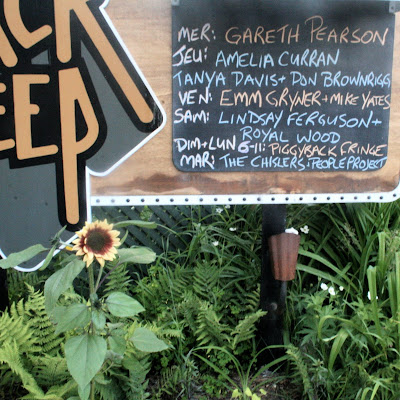 ACK
EEP
MER: GARETH PEARSON
JEU: AMELIA CURRAN
TANYA DAVIS + DON BROWNRIGG
VEN: EMM GRYNER + MIKE YATES
SAM: LINDSAY FERGUSON +
ROYAL WOOD
DIM + LUN 6-11: PIGGYBACK FRINGE
MAR: THE CHISLERS: PEOPLE PROJECT